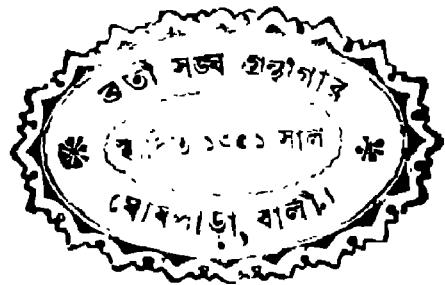 ব্রতী সঙ্ঘ গ্রন্থাগার
১৩৫১ সাল
ঘোষপাড়া, বালী।